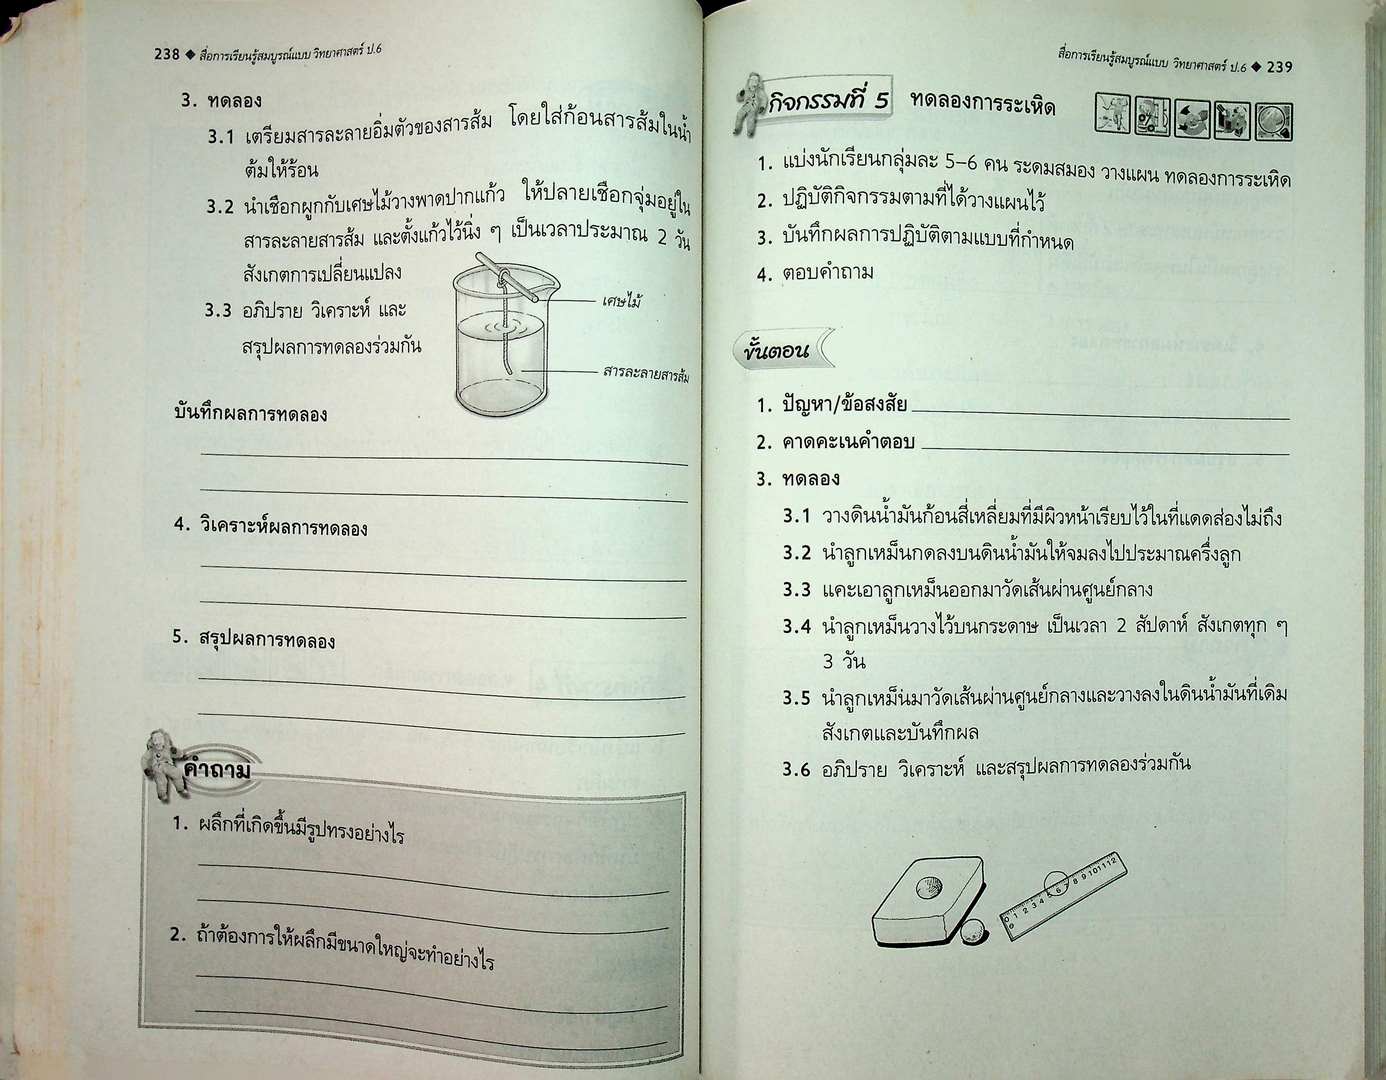 238 ◆ สื่อการเรียนรู้สมบูรณ์แบบ วิทยาศาสตร์ ป.6
3. ทดลอง
3.1 เตรียมสารละลายอิ่มตัวของสารส้ม โดยใส่ก้อนสารส้มในน้ำ
ต้มให้ร้อน
3.2 นำเชือกผูกกับเศษไม้วางพาดปากแก้ว ให้ปลายเชือกจุ่มอยู่ใน
สารละลายสารส้ม และตั้งแก้วไว้นิ่ง ๆ เป็นเวลาประมาณ 2 วัน
สังเกตการเปลี่ยนแปลง
3.3 อภิปราย วิเคราะห์ และ
สรุปผลการทดลองร่วมกัน
เศษไม้
สารละลายสารส้ม
บันทึกผลการทดลอง
4. วิเคราะห์ผลการทดลอง
5. สรุปผลการทดลอง
คำถาม
1. ผลึกที่เกิดขึ้นมีรูปทรงอย่างไร
2. ถ้าต้องการให้ผลึกมีขนาดใหญ่จะทำอย่างไร
สื่อการเรียนรู้สมบูรณ์แบบ วิทยาศาสตร์ ป.6 ◆ 239
กิจกรรมที่ 5 ทดลองการระเหิด
1. แบ่งนักเรียนกลุ่มละ 5–6 คน ระดมสมอง วางแผน ทดลองการระเหิด
2. ปฏิบัติกิจกรรมตามที่ได้วางแผนไว้
3. บันทึกผลการปฏิบัติตามแบบที่กำหนด
4. ตอบคำถาม
ขั้นตอน
1. ปัญหา/ข้อสงสัย
2. คาดคะเนคำตอบ
3. ทดลอง
3.1 วางดินน้ำมันก้อนสี่เหลี่ยมที่มีผิวหน้าเรียบไว้ในที่แดดส่องไม่ถึง
3.2 นำลูกเหม็นกดลงบนดินน้ำมันให้จมลงไปประมาณครึ่งลูก
3.3 แคะเอาลูกเหม็นออกมาวัดเส้นผ่านศูนย์กลาง
3.4 นำลูกเหม็นวางไว้บนกระดาษ เป็นเวลา 2 สัปดาห์ สังเกตทุก ๆ
3 วัน
3.5 นำลูกเหม็นมาวัดเส้นผ่านศูนย์กลางและวางลงในดินน้ำมันที่เดิม
สังเกตและบันทึกผล
3.6 อภิปราย วิเคราะห์ และสรุปผลการทดลองร่วมกัน
0 1 2 3 4 5 6 7 8 9 10 11 12
0